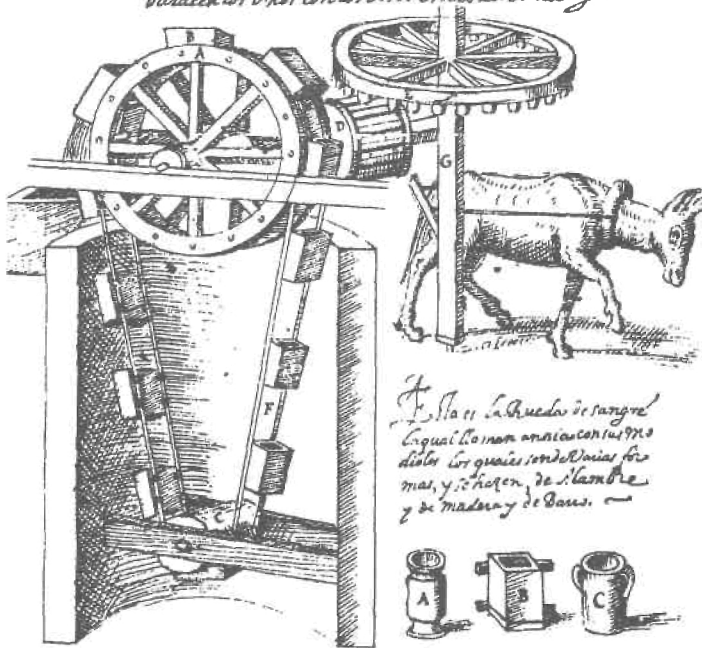 B
A
D
G
F
C
Esta es la Rueda de sangre
laqual llaman annia consus mo
diolos los quales son de Varias for
mas, y se hazen, de Alambre
y de madera y de Barro.
A
B
C